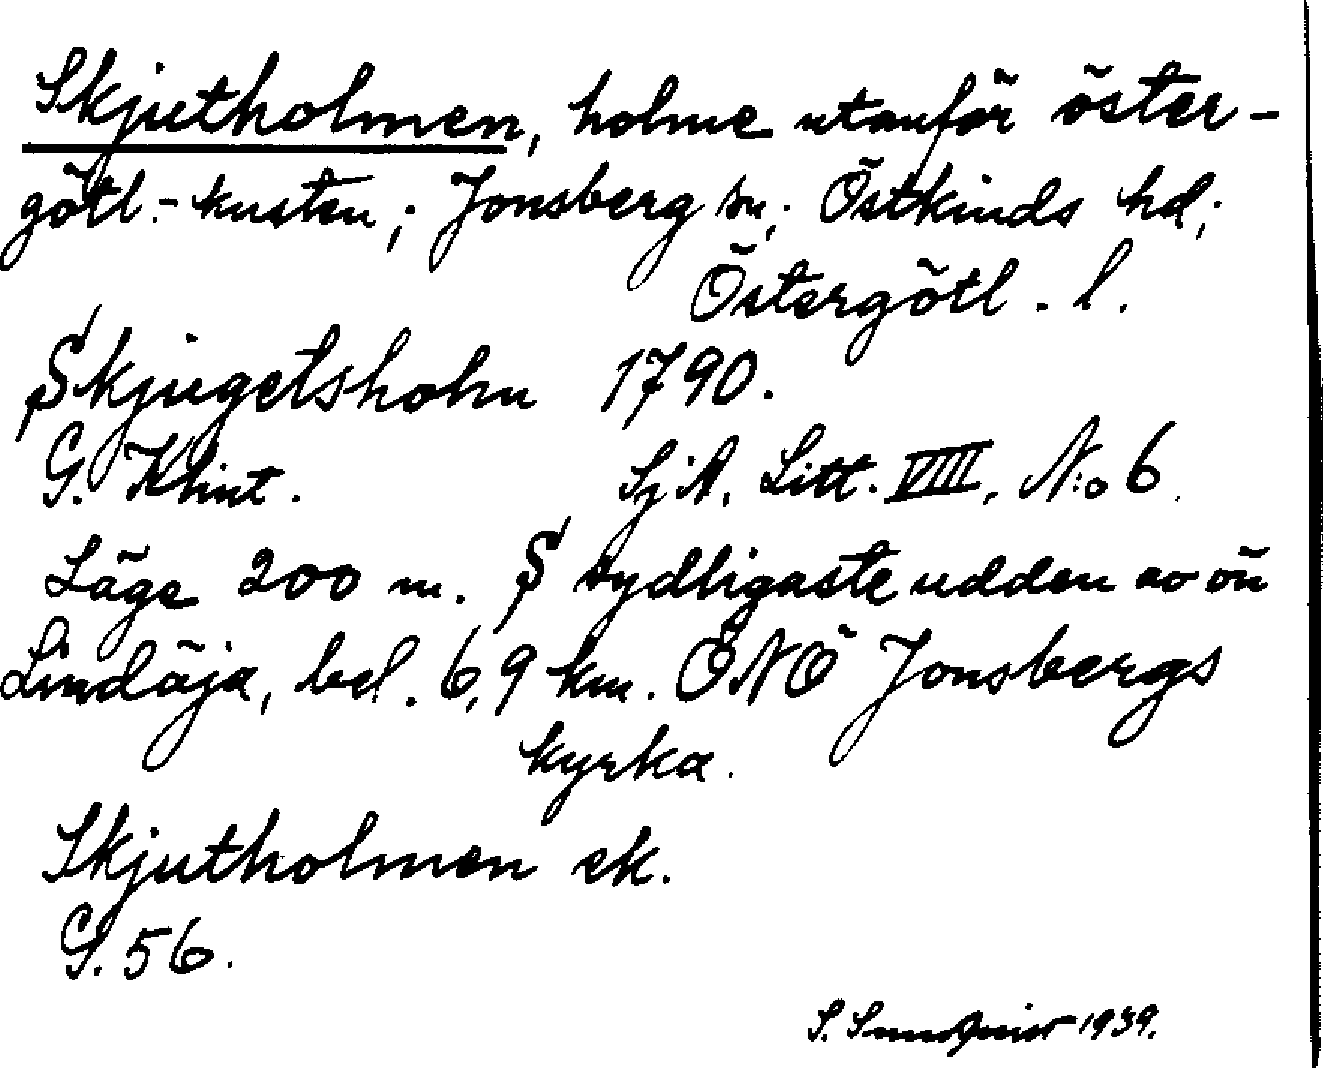 Skjutholmen, holme utanför öster-
götl.-kusten; Jonsberg sn; Östkinds hd;
Östergötl. l.
Skjugetsholm 1790.
G. Klint. SjA. Litt. VIII, N:o 6.
Läge 200 m. S sydligaste udden av ön
Lindöja, bel. 6,9 km. ÖNÖ Jonsbergs
kyrka.
Skjutholmen ek.
G. 56.
S. 1939.